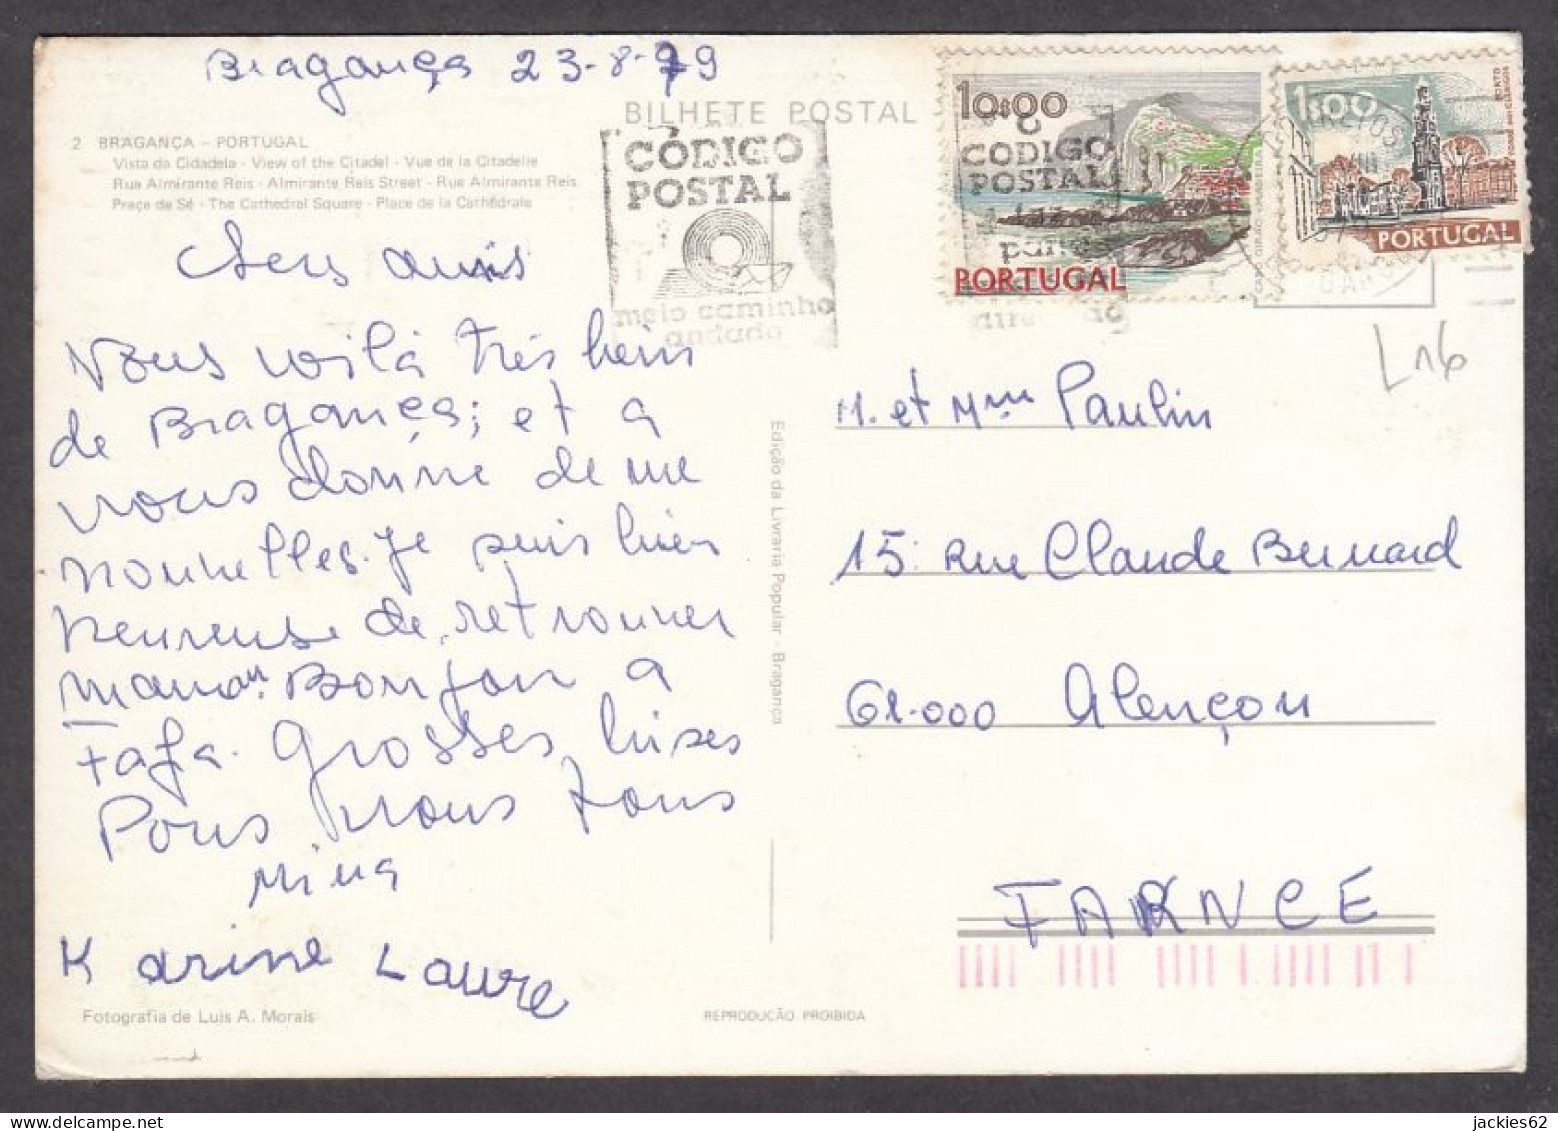 Bragança 23-8-79
BILHETE POSTAL
2 BRAGANÇA - PORTUGAL
Vista da Cidadela - View of the Citadel - Vue de la Citadelle
Rua Almirante Reis - Almirante Reis Street - Rue Almirante Reis
Praça da Sé - The Cathedral Square - Place de la Cathédrale
CÓDIGO
POSTAL
meio caminho
andado
10$00
CODIGO
POSTAL
PORTUGAL
1$00
PORTUGAL
L16
Chers amis
Nous voilà très bein
de Bragança; et a
vous donne de me
nouvelles. Je suis bien
heureuse de retrouver
maman. Bonjour a
Fafa. Grosses bises
Pous nous tous
Nina
Karine Laure
M. et Mme Paulin
15: Rue Claude Bernard
61.000 Alençon
FARNCE
Edição da Livraria Popular - Bragança
Fotografia de Luis A. Morais
REPRODUÇÃO PROIBIDA
jackies62